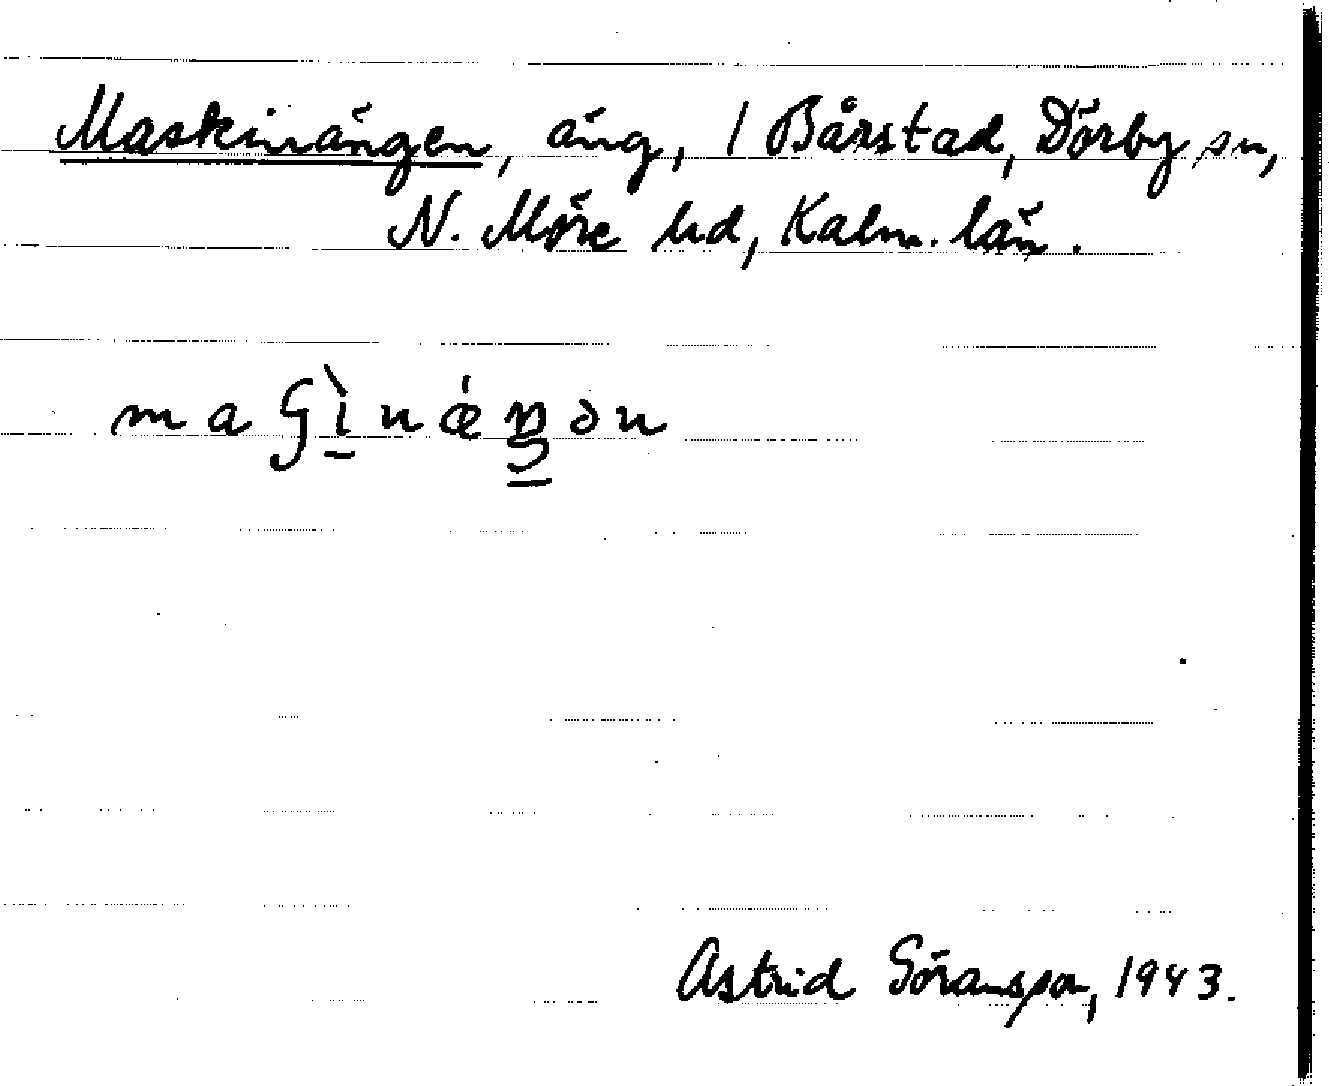 Maskinängen, äng, 1 Bårstad, Dörby sn,
N. Möre hd, Kalm. län.
Astrid Göransson, 1943.